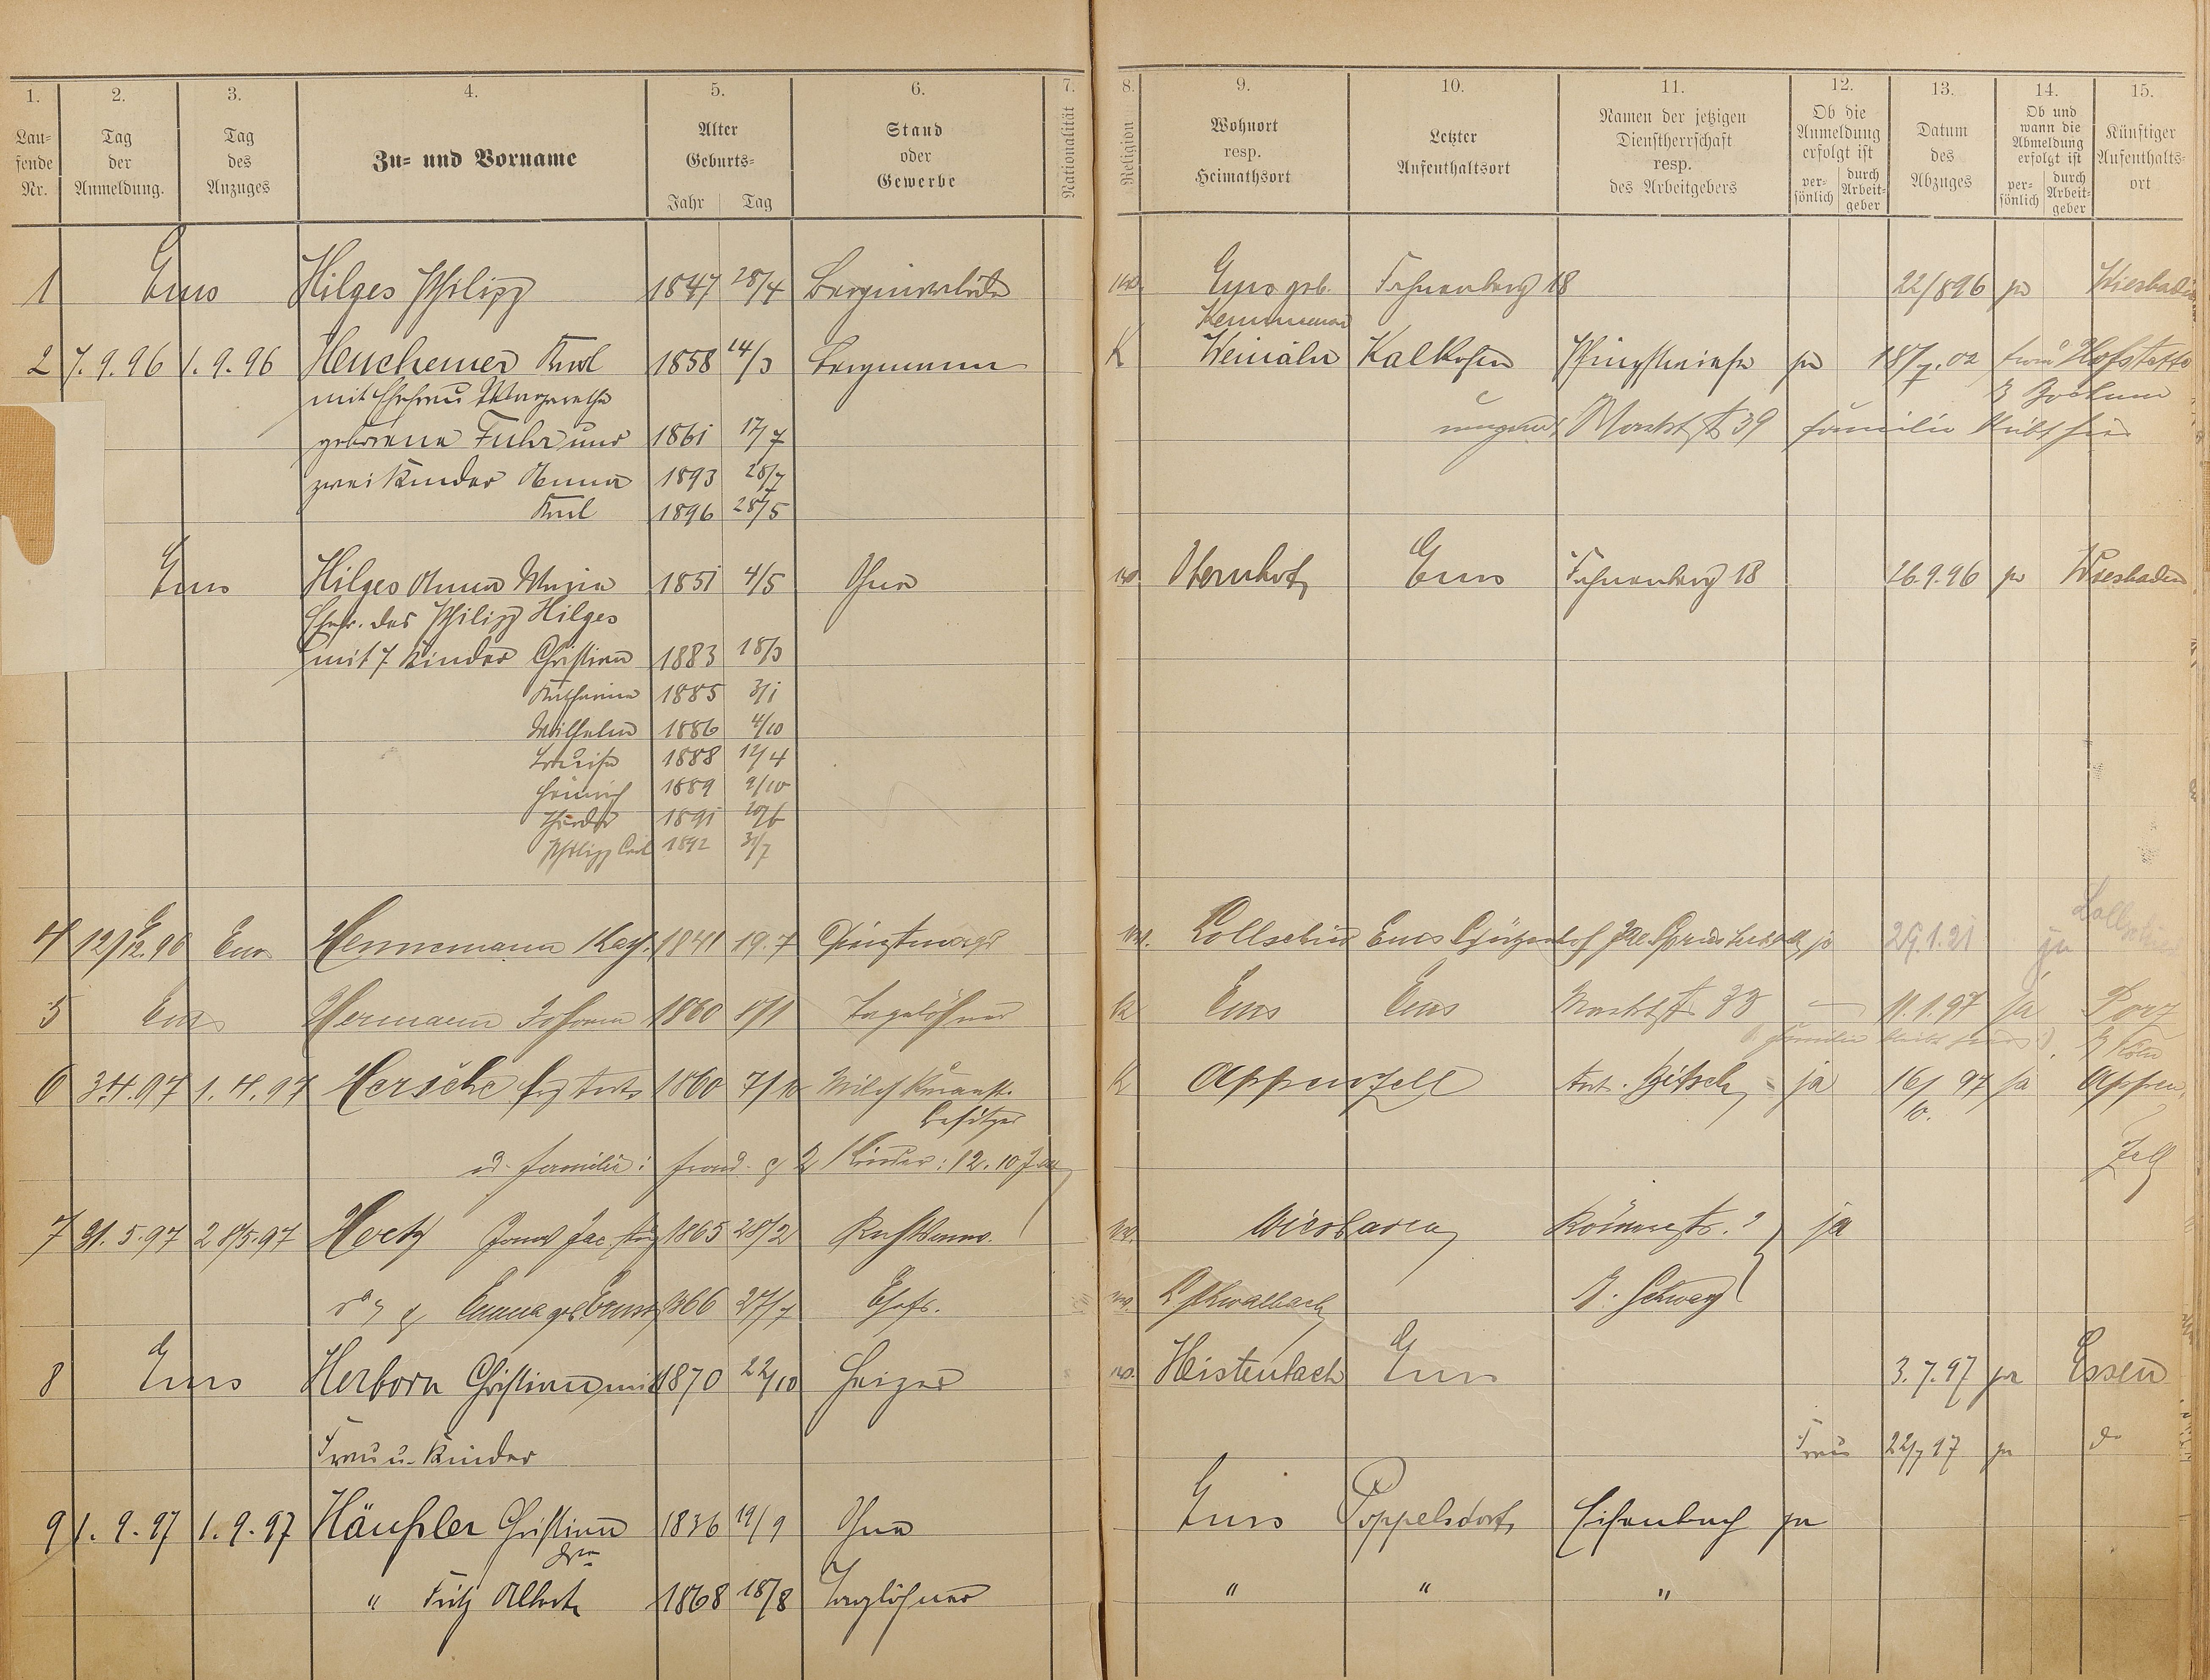 1. 2. 3. 4. 5. 6. 7. 8. 9. 10. 11. 12. 13. 14. 15.
Lau-
fende
Nr.
Tag
der
Anmeldung.
Tag
des
Anzuges
Zu- und Vorname
Alter
Geburts-
Jahr Tag
Stand
oder
Gewerbe
Nationalität
Religion
Wohnort
resp.
Heimathsort
Letzter
Aufenthaltsort
Namen der jetzigen
Dienstherrschaft
resp.
des Arbeitgebers
Ob die
Anmeldung
erfolgt ist
per-
sönlich
durch
Arbeit-
geber
Datum
des
Abzuges
Ob und
wann die
Abmeldung
erfolgt ist
per-
sönlich
durch
Arbeit-
geber
Künftiger
Aufenthalts-
ort
1 Ems Hilges Philipp 1847 28/4 Berginvalide Ems geb. Fahnenberg 18 22/8 96 ja Wiesbaden
Kemmenau
2 7.9.96 1.9.96 Heuchemer Karl 1858 14/3 Bergmann K Weinähr Kalkofen Pfingstwiese ja 18/7.02 Hofstette
mit Ehefrau Margarethe
b Bochum
geborene Fuhr und 1861 17/7 Marktstr 39 familie bleibt hier
zwei Kinder Anna 1893 28/7
Karl 1896 28/5
Ems Hilges Anna Maria 1851 4/5 Ohne Obernhof Ems Fahnenberg 18 26.9.96 ja Wiesbaden
Ehefr. des Philipp Hilges
mit 7 Kinder Christian 1883 18/3
Katharina 1885 3/1
Wilhelm 1886 4/10
Louise 1888 12/4
Heinrich 1889 9/10
1891 20/6
Philipp Carl 1892 31/7
4 Ems Hennemann Kath. 1841 19.7 Dienstmagd Lollschied Ems Schützenhof ja 29.1.21 ja Lollschied
5 Ems Hermann Johann 1860 Tagelöhner K Ems Ems Marktstr 33 — 11.1.97 ja Porz
familie bleibt hier
b Köln
6 3.4.97 1.4.97 Hersche 1860 7/10 Milchkuranst. K Appenzell Ant. ja 16/10. 97 ja Appen
besitzer
zell
u. familie: frau u. 2 Kinder: 12. 10 Jahr
7 31.5.97 28/5.97 1865 28/2 Wiesbaden Römerstr. ja
Emma geb. 1866 27/7 Ehefr. L. Schwalbach
8 Ems Herborn Christian mit 1870 22/10 Heizer Heistenbach Ems 3.7.97 ja Essen
Frau u. Kinder Frau 22/7 97 ja do
9 1.9.97 1.9.97 Häußler Christian 1836 19/9 Ohne Ems Poppelsdorf Eisenbach ja
" Fritz Albert 1868 18/8 Taglöhner " " "